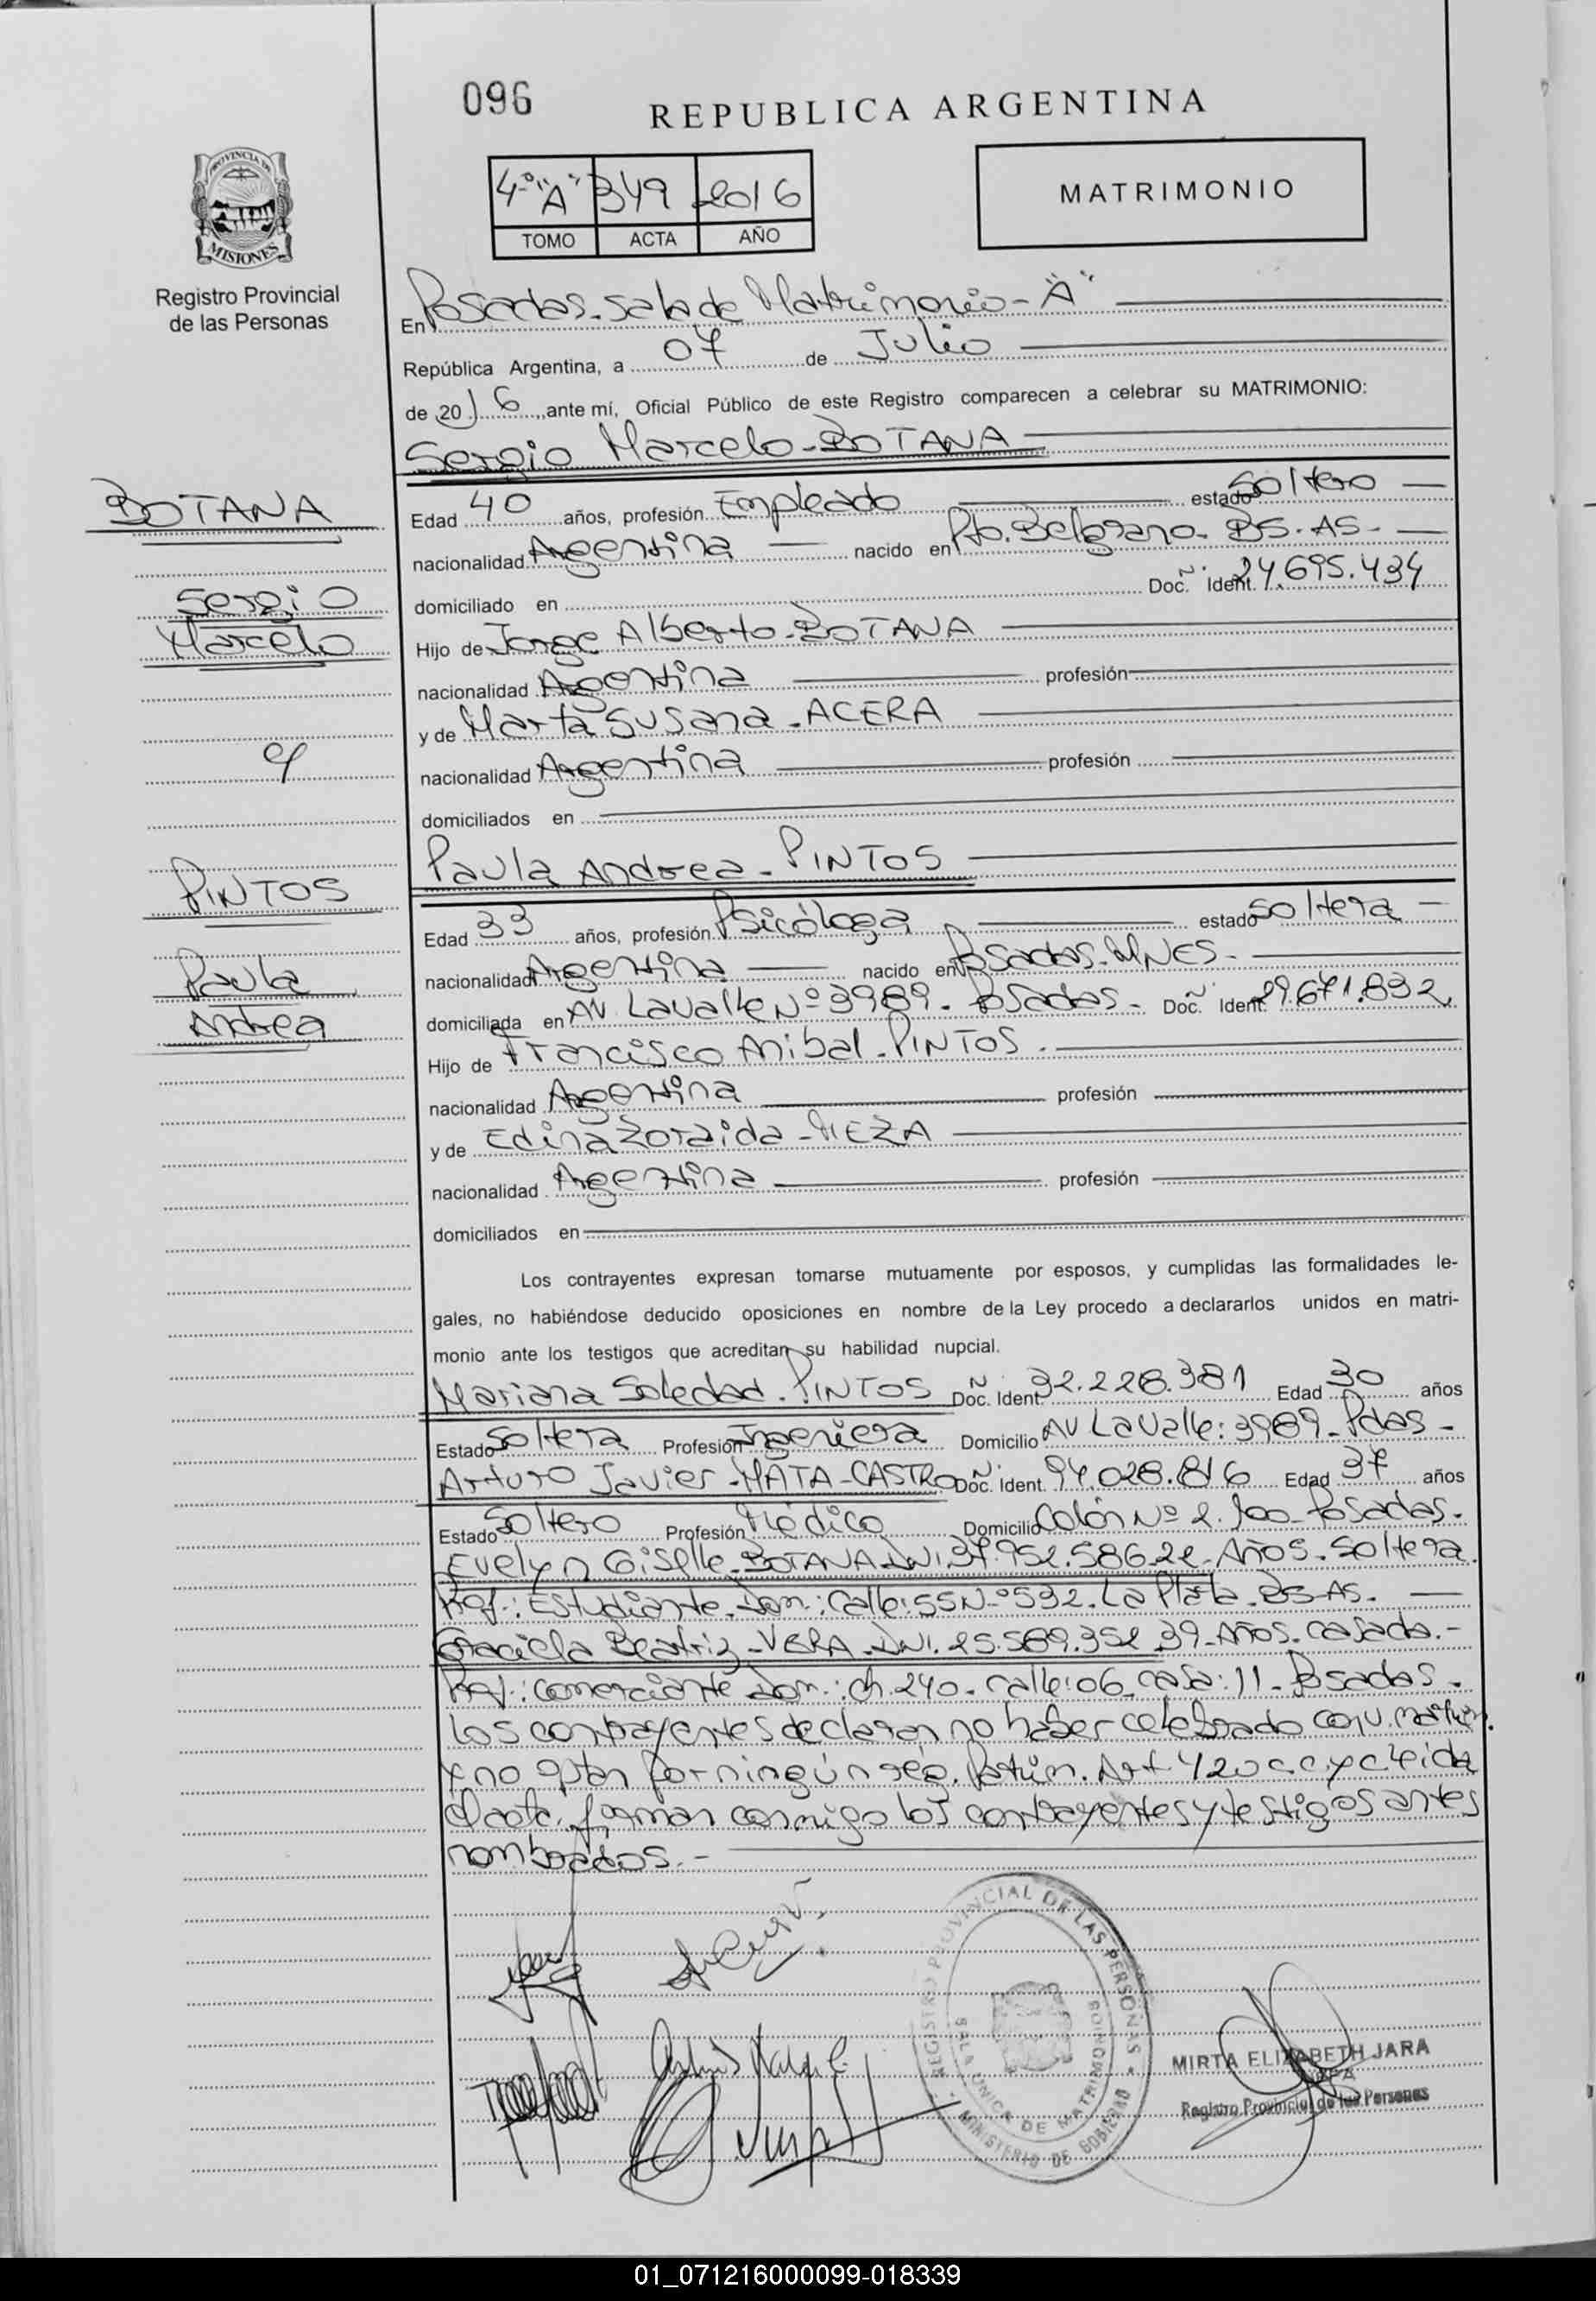 096
REPUBLICA ARGENTINA
PROVINCIA DE
MISIONES
Registro Provincial
de las Personas
4º "A" 349 2016
TOMO ACTA AÑO
MATRIMONIO
En Posadas-Sala de Matrimonio-"A"
República Argentina, a 07 de Julio
de 2016, ante mí, Oficial Público de este Registro comparecen a celebrar su MATRIMONIO:
Sergio Marcelo-BOTANA
BOTANA
Sergio
Marcelo
y
PINTOS
Paula
Andrea
Edad 40 años, profesión Empleado estado Soltero
nacionalidad Argentina nacido en Pto. Belgrano-BS-AS-
domiciliado en Doc. Ident. 24.695.434
Hijo de Jorge Alberto-BOTANA
nacionalidad Argentina profesión
y de Marta Susana-ACERA
nacionalidad Argentina profesión
domiciliados en
Paula Andrea-PINTOS
Edad 33 años, profesión Psicóloga estado Soltera
nacionalidad Argentina nacido en Posadas-MNES-
domiciliada en AV. Lavalle Nº 3989-Posadas- Doc. Ident. 29.671.832
Hijo de Francisco Anibal-PINTOS.
nacionalidad Argentina profesión
y de Edina Zoraida-MEZA
nacionalidad Argentina profesión
domiciliados en
Los contrayentes expresan tomarse mutuamente por esposos, y cumplidas las formalidades le-
gales, no habiéndose deducido oposiciones en nombre de la Ley procedo a declararlos unidos en matri-
monio ante los testigos que acreditan su habilidad nupcial.
Mariana Soledad-PINTOS Doc. Ident. 32.228.381 Edad 30 años
Estado Soltera Profesión Ingeniera Domicilio AV Lavalle: 3989-Pdas-
Arturo Javier-MATA-CASTRO Doc. Ident. 94.028.816 Edad 37 años
Estado Soltero Profesión Médico Domicilio Colón Nº 2.100-Posadas.
Evelyn Giselle-BOTANA-DNI 37.952.586-22-Años-Soltera
Prof.: Estudiante-Dom: Calle: 55 Nº 532-La Plata-BS-AS.
Graciela Beatriz-VERA-DNI. 25.589.352 39-Años-casada.-
Prof.: comerciante Dom.: ch 240-calle: 06-casa: 11-Posadas.
Los contrayentes declaran no haber celebrado conv. matrim.
y no optan por ningún rég. Patrim. Art 420 cc y c Leída
el acta, firman conmigo los contrayentes y testigos antes
nombrados.-
REGISTRO PROVINCIAL DE LAS PERSONAS
SALA UNICA DE MATRIMONIOS
MINISTERIO DE GOBIERNO
MIRTA ELIZABETH JARA
Registro Provincial de las Personas
01_071216000099-018339